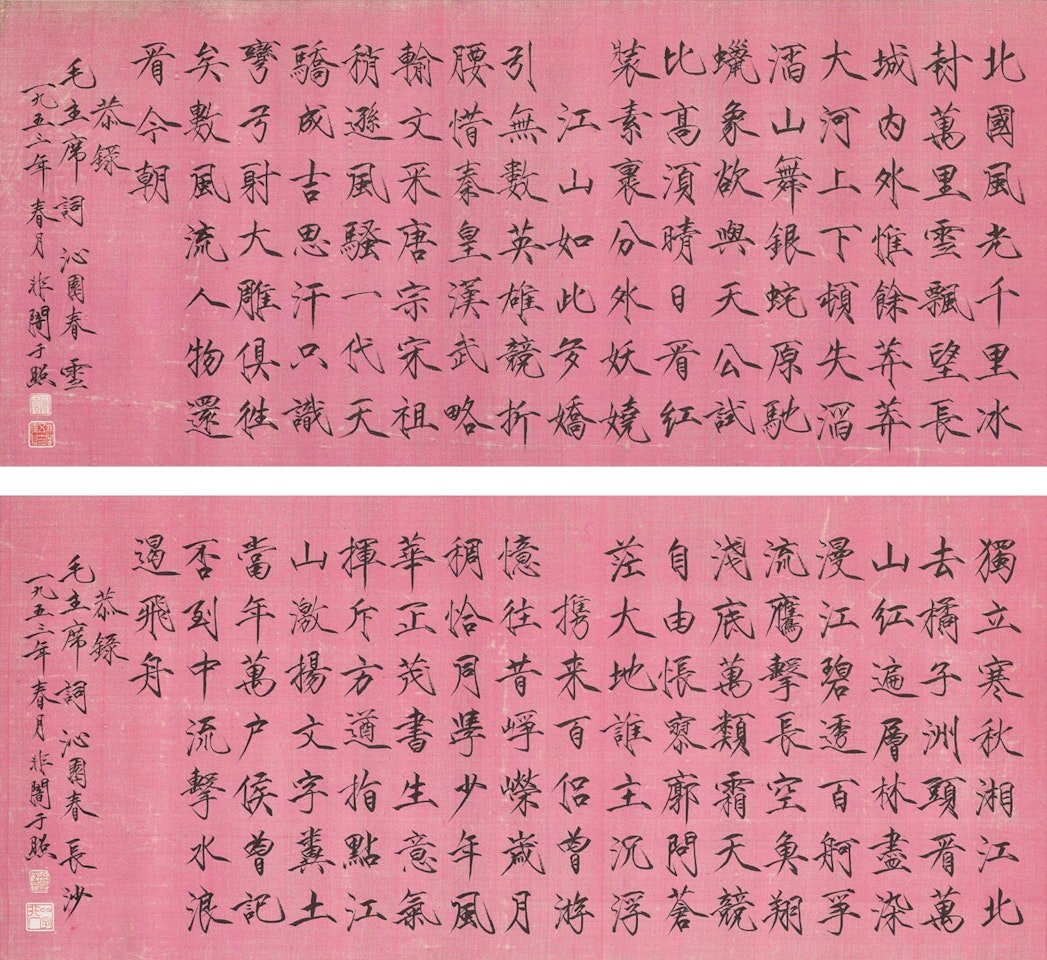 北國風光千里冰
封萬里雲飄望長
城内外惟餘莽莽
大河上下頓失滔
滔山舞銀蛇原馳
蠟象欲與天公試
比高須晴日看紅
裝素裹分外妖嬈
江山如此多嬌
引無數英雄競折
腰惜秦皇漢武略
輸文采唐宗宋祖
稍遜風騷一代天
驕成吉思汗只識
彎弓射大雕俱往
矣數風流人物還
看今朝
恭録
毛主席詞沁園春雲
一九五三年春月非闇于照
獨立寒秋湘江北
去橘子洲頭看萬
山紅遍層林盡染
漫江碧透百舸爭
流鷹擊長空魚翔
淺底萬類霜天競
自由悵寥廓問蒼
茫大地誰主沉浮
携来百侣曾游
憶往昔崢嶸歲月
稠恰同學少年風
華正茂書生意氣
揮斥方遒指點江
山激揚文字糞土
當年萬户侯曾記
否到中流擊水浪
遏飛舟
恭録
毛主席詞沁園春長沙
一九五三年春月非闇于照